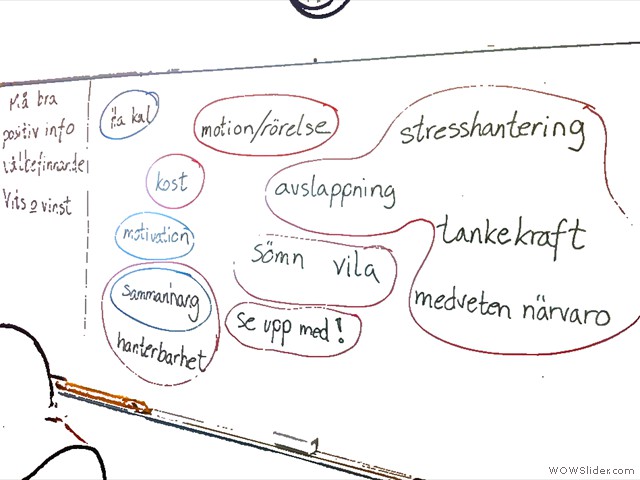 Må bra
positiv info
välbefinnande
Vits 2 vinst
motion/rörelse
kost
motivation
sammanhang
hanterbarhet
stresshantering
avslappning
tankekraft
sömn vila
medveten närvaro
se upp med!
WOWSlider.com